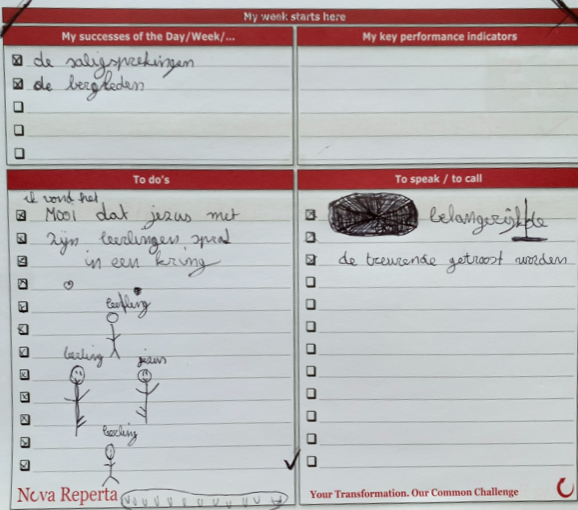 My week starts here
My successes of the Day/Week/...
de saligsprekingen
de bergreden
My key performance indicators
To do's
ik vond het
Mooi dat jezus met
zijn leerlingen sprak
in een kring
leerling
leerling jezus
leerling
To speak / to call
belangerijkde
de treurende getroost worden
Nova Reperta
Your Transformation. Our Common Challenge